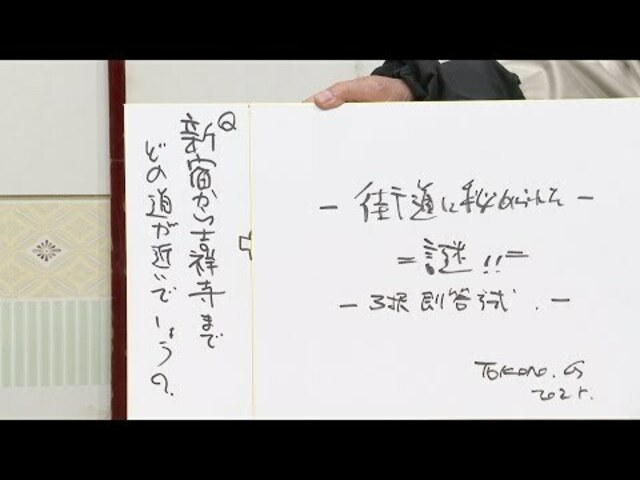 Q
新宿から吉祥寺まで
どの道が近いでしょうか?
－街道に秘められた－
＝謎!!＝
－3択即答式.－
TOKORO.G
2021.